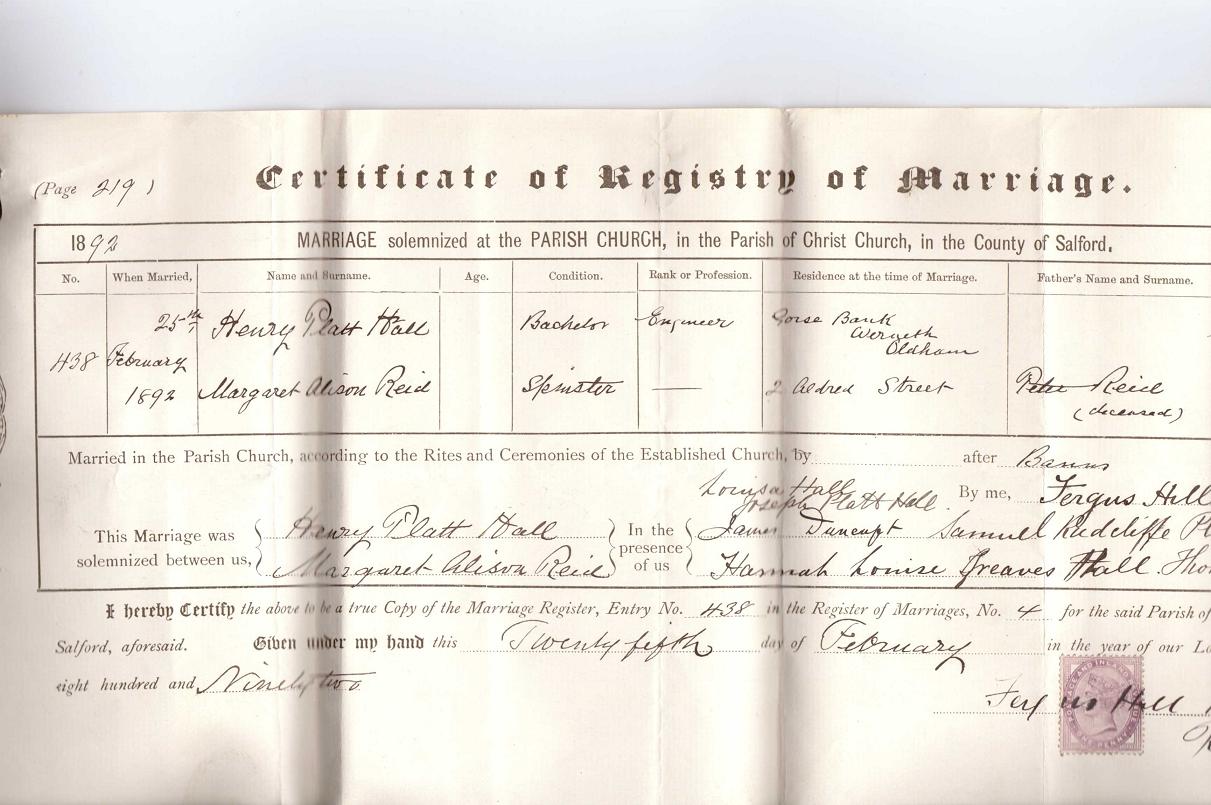 (Page 219)
Certificate of Registry of Marriage.
1892 MARRIAGE solemnized at the PARISH CHURCH, in the Parish of Christ Church, in the County of Salford.
No. When Married, Name and Surname. Age. Condition. Rank or Profession. Residence at the time of Marriage. Father's Name and Surname.
438 25th February 1892
Henry Platt Hall Bachelor Engineer Gorse Bank
Werneth
Oldham
Margaret Alison Reid Spinster — 2 Aldred Street Peter Reid
(deceased)
Married in the Parish Church, according to the Rites and Ceremonies of the Established Church, by after Banns
By me, Fergus Hill
This Marriage was solemnized between us, Henry Platt Hall
Margaret Alison Reid
In the presence of us
Louisa Hall
Joseph Platt Hall.
James Samuel Radcliffe
Hannah Louise Greaves Hall.
I hereby Certify the above to be a true Copy of the Marriage Register, Entry No. 438 in the Register of Marriages, No. 4 for the said Parish of
Salford, aforesaid. Given under my hand this Twenty fifth day of February in the year of our
eight hundred and Ninety two
Fergus Hill
POSTAGE AND INLAND
ONE PENNY